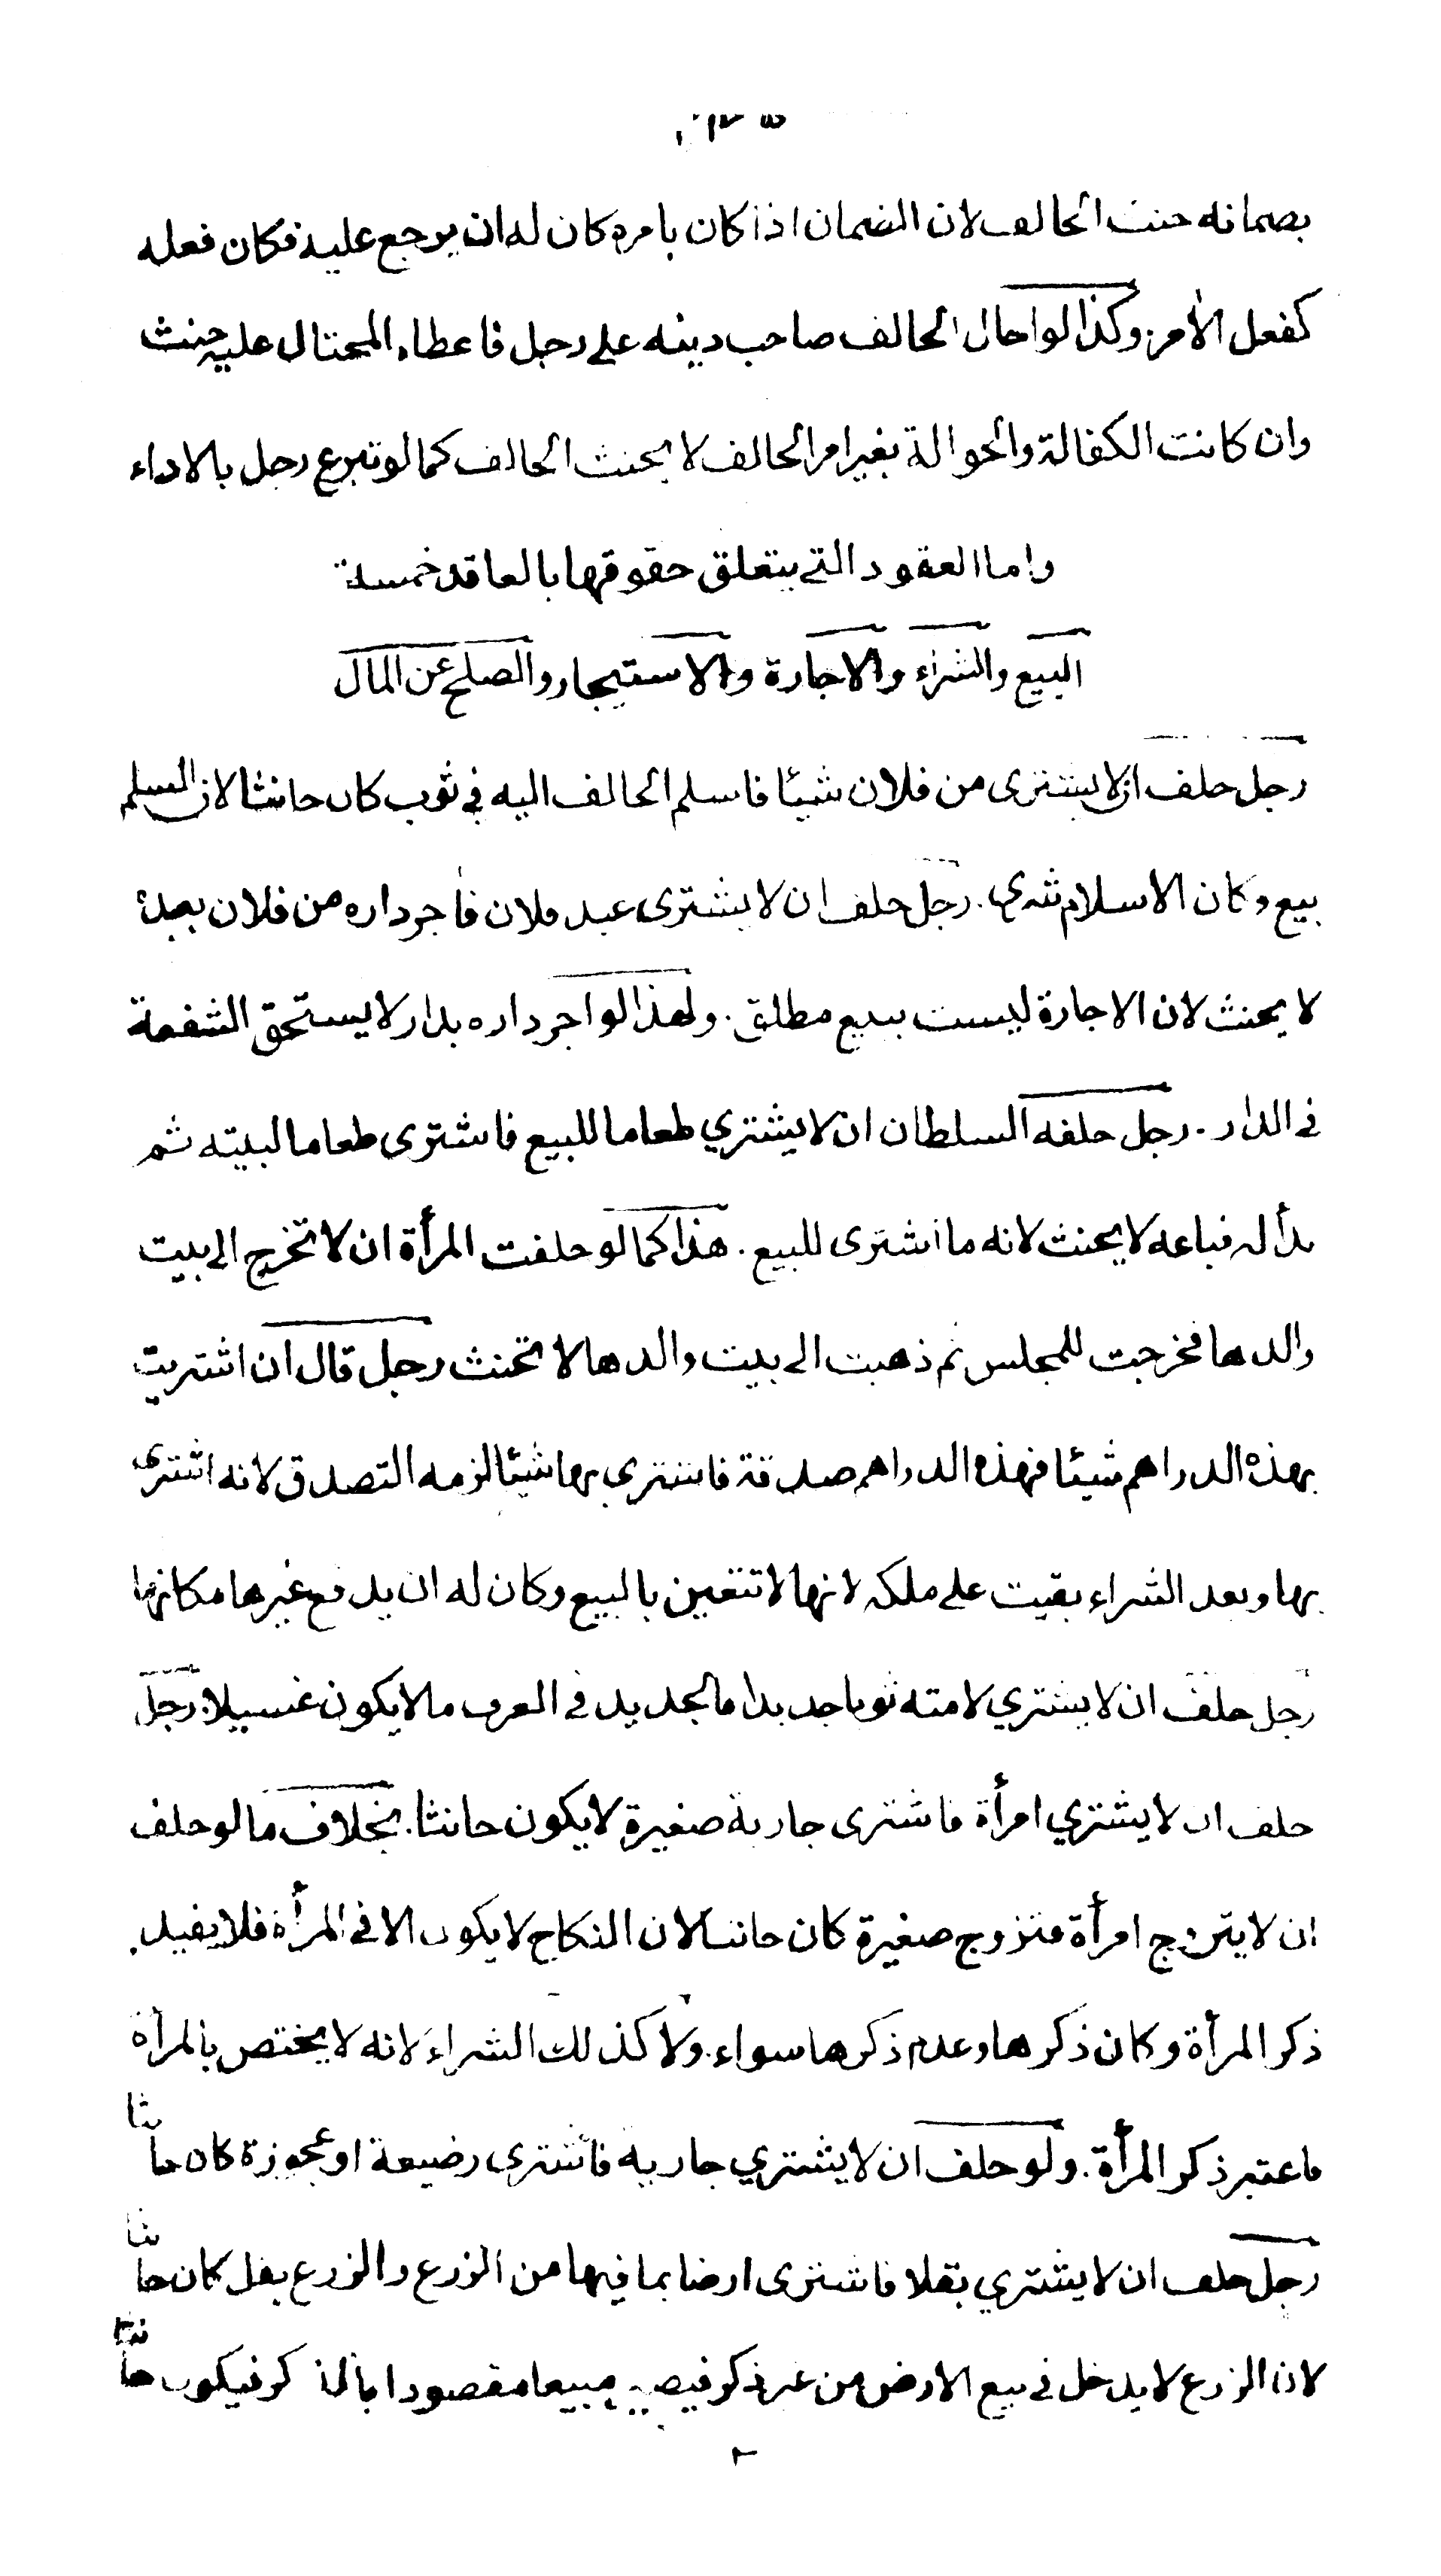 بضمانه حنث الحالف لان الضمان اذا كان بامره كان له ان يرجع عليه فكان فعله
كفعل الأمر. وكذا لو احال الحالف صاحب دينه على رجل فاعطاه المحتال عليه حنث
وان كانت الكفالة والحوالة بغير امر الحالف لا يحنث الحالف كما لو تبرع رجل بالاداء
واما العقود التي يتعلق حقوقها بالعاقد خمسة
البيع والشراء والاجارة والاستيجار والصلح عن المال
رجل حلف ان لا يشترى من فلان شيئا فاسلم الحالف اليه في ثوب كان حانثا لان المسلم
بيع وكان الاسلام شرى. رجل حلف ان لا يشترى عبد فلان فأجر داره من فلان بعبدة
لا يحنث لان الاجارة ليست ببيع مطلق. ولهذا لو اجر داره بدار لا يستحق الشفعة
في الدار. رجل حلفه السلطان ان لا يشتري طعاما للبيع فاشترى طعاما لبيته ثم
بدأ له فباعه لا يحنث لانه ما اشترى للبيع. هذا كما لو حلفت المرأة ان لا تخرج الى بيت
والدها فخرجت للمجلس ثم ذهبت الى بيت والدها لا تحنث رجل قال ان اشتريت
بهذه الدراهم شيئا فهذه الدراهم صدقة فاشترى بها شيئا لزمه التصدق لانه اشترى
بها وبعد الشراء بقيت على ملكه لانها لا تتعين بالبيع وكان له ان يدفع غيرها مكانها
رجل حلف ان لا يشتري لامته ثوبا جديدا فالجديد في العرف ما لا يكون غسيلا. رجل
حلف ان لا يشتري امرأة فاشترى جارية صغيرة لا يكون حانثا. بخلاف ما لو حلف
ان لا يتزوج امرأة فتزوج صغيرة كان حانثا لان النكاح لا يكون الا في المرأة فلا يفيد
ذكر المرأة وكان ذكرها وعدم ذكرها سواء. ولا كذلك الشراء لانه لا يختص بالمرأة
فاعتبر ذكر المرأة. ولو حلف ان لا يشتري جارية فاشترى رضيعة او عجوزة كان حانثا
رجل حلف ان لا يشتري بقلا فاشترى ارضا بما فيها من الزرع والزرع بقل كان حانثا
لان الزرع لا يدخل في بيع الارض من غير ذكر فيصير مبيعا مقصودا بالذكر فيكون حانثا